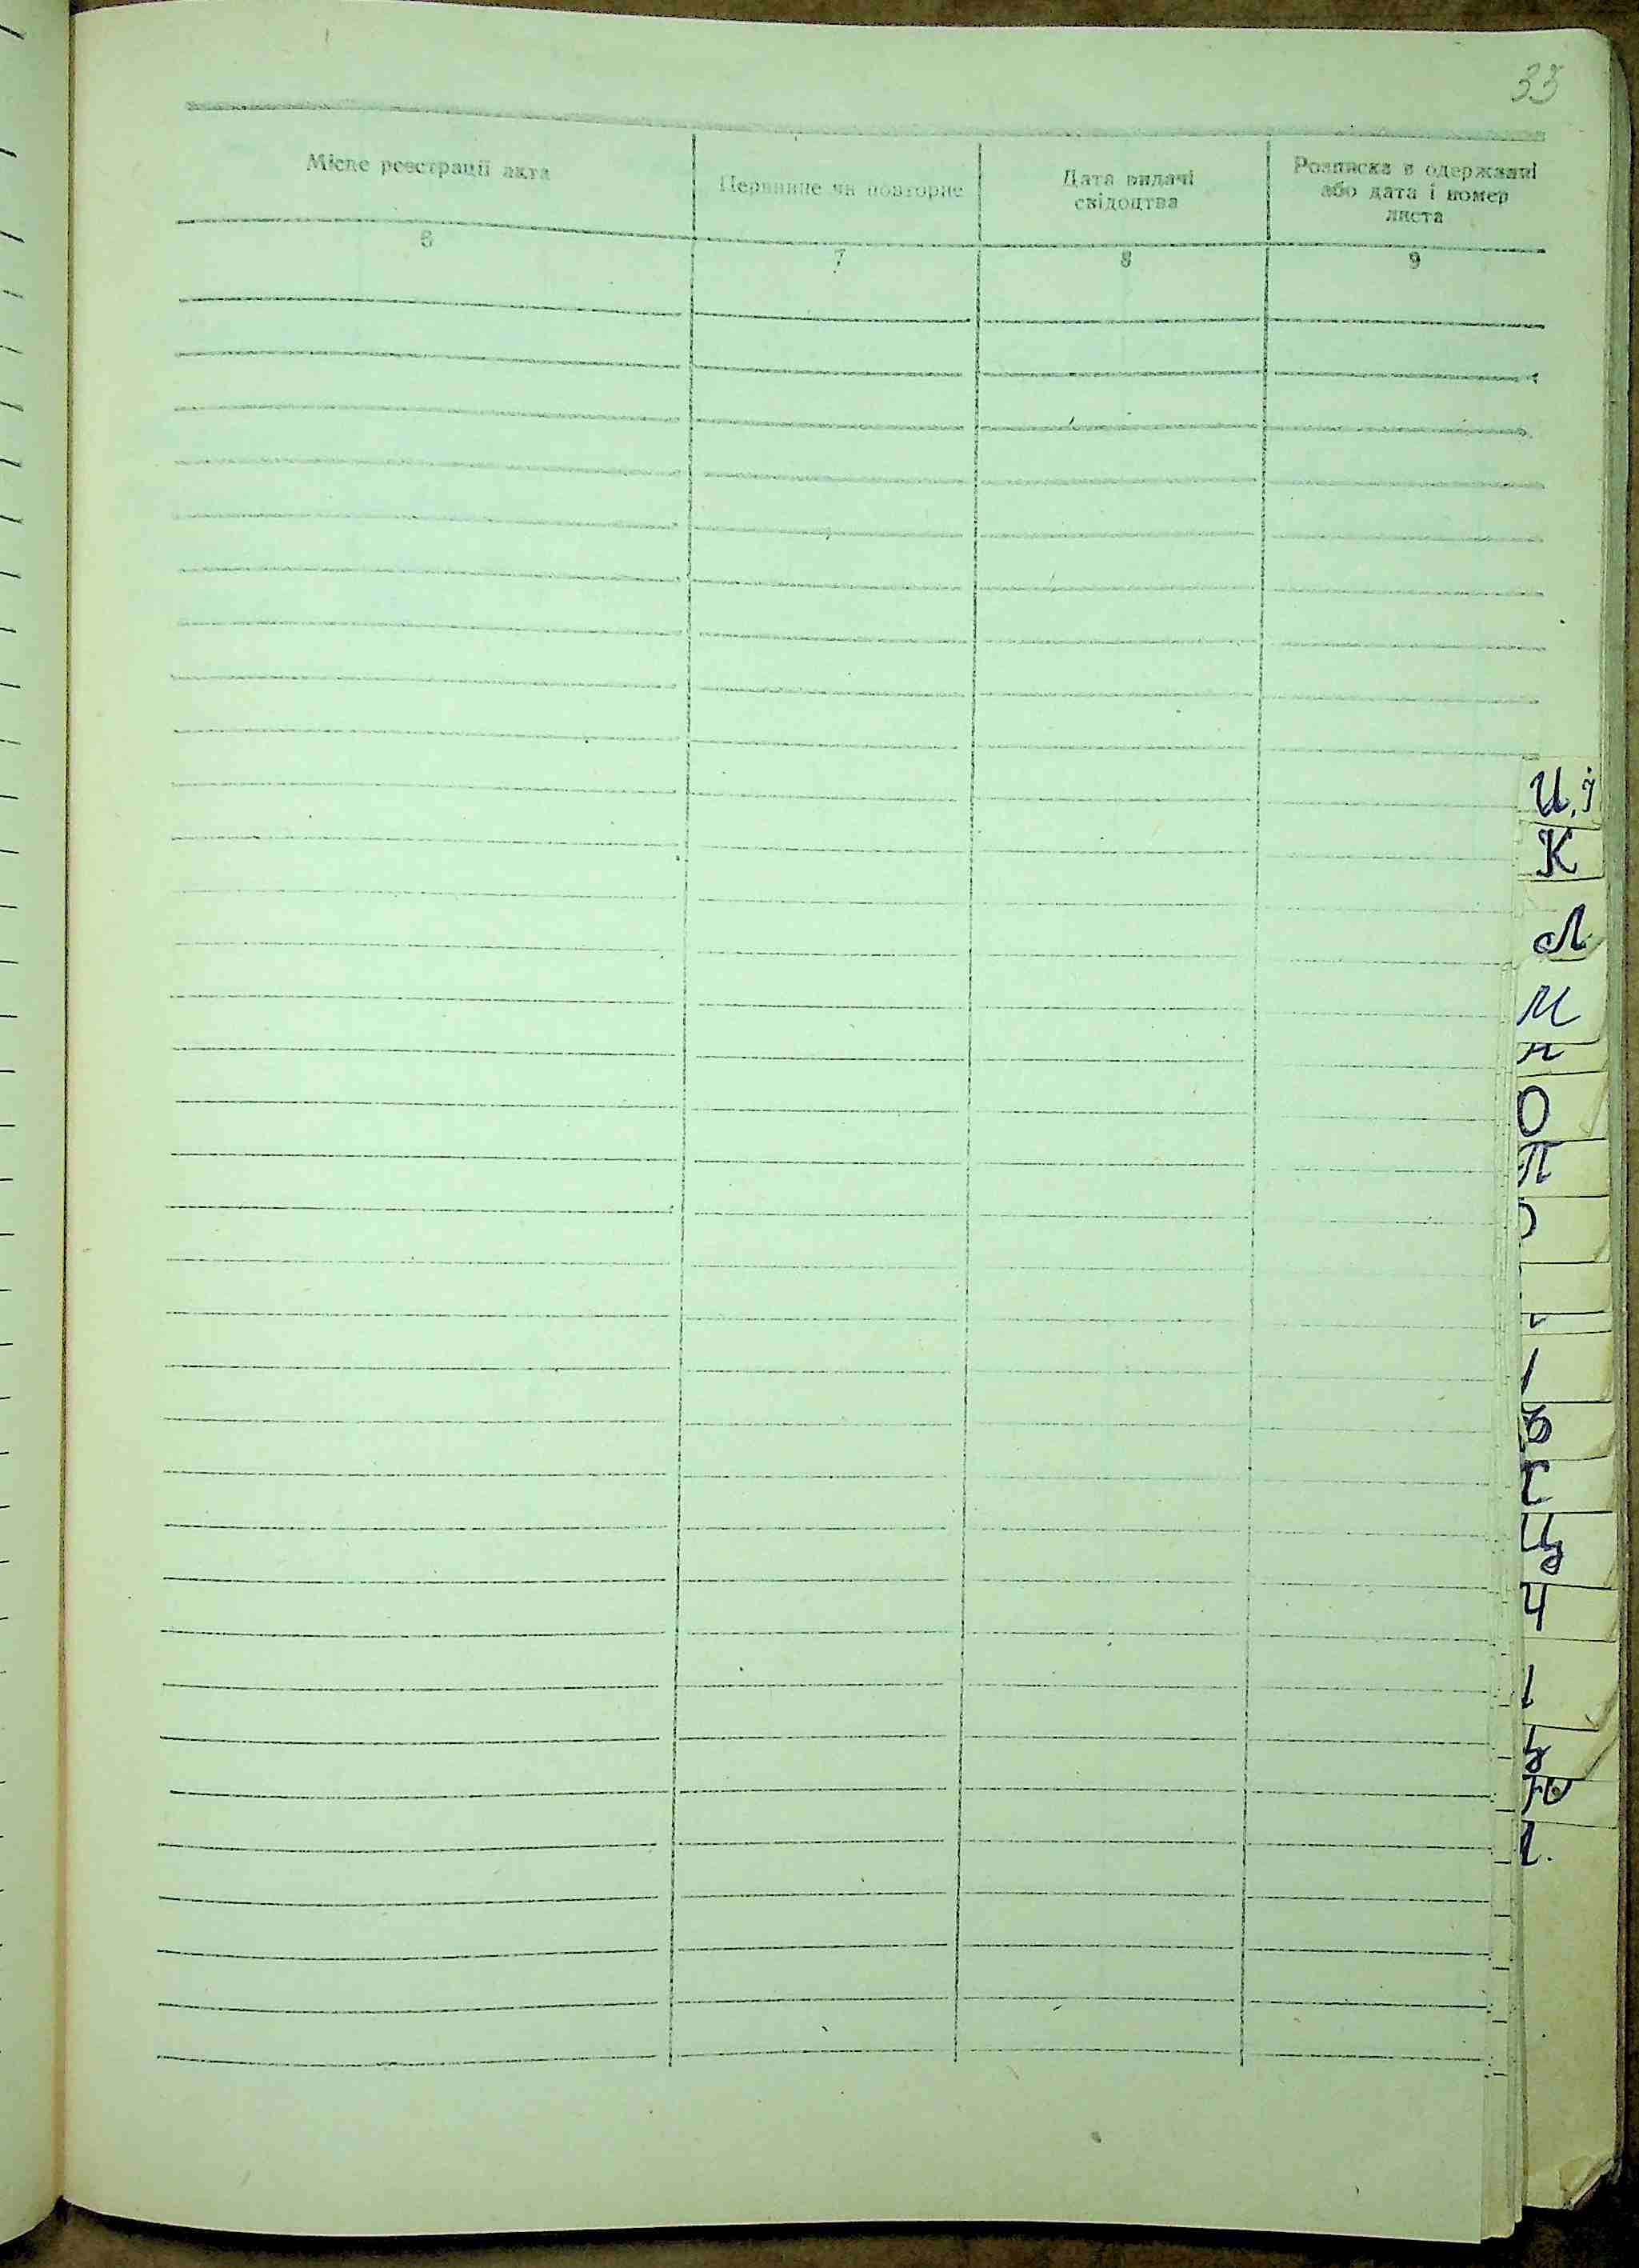 33
Місце реєстрації акта
Первинне чи повторне
Дата видачі
свідоцтва
Розписка в одержанні
або дата і номер
листа
6
7
8
9
И, і
К
Л
М
О
П
Ц
Ч
Ю